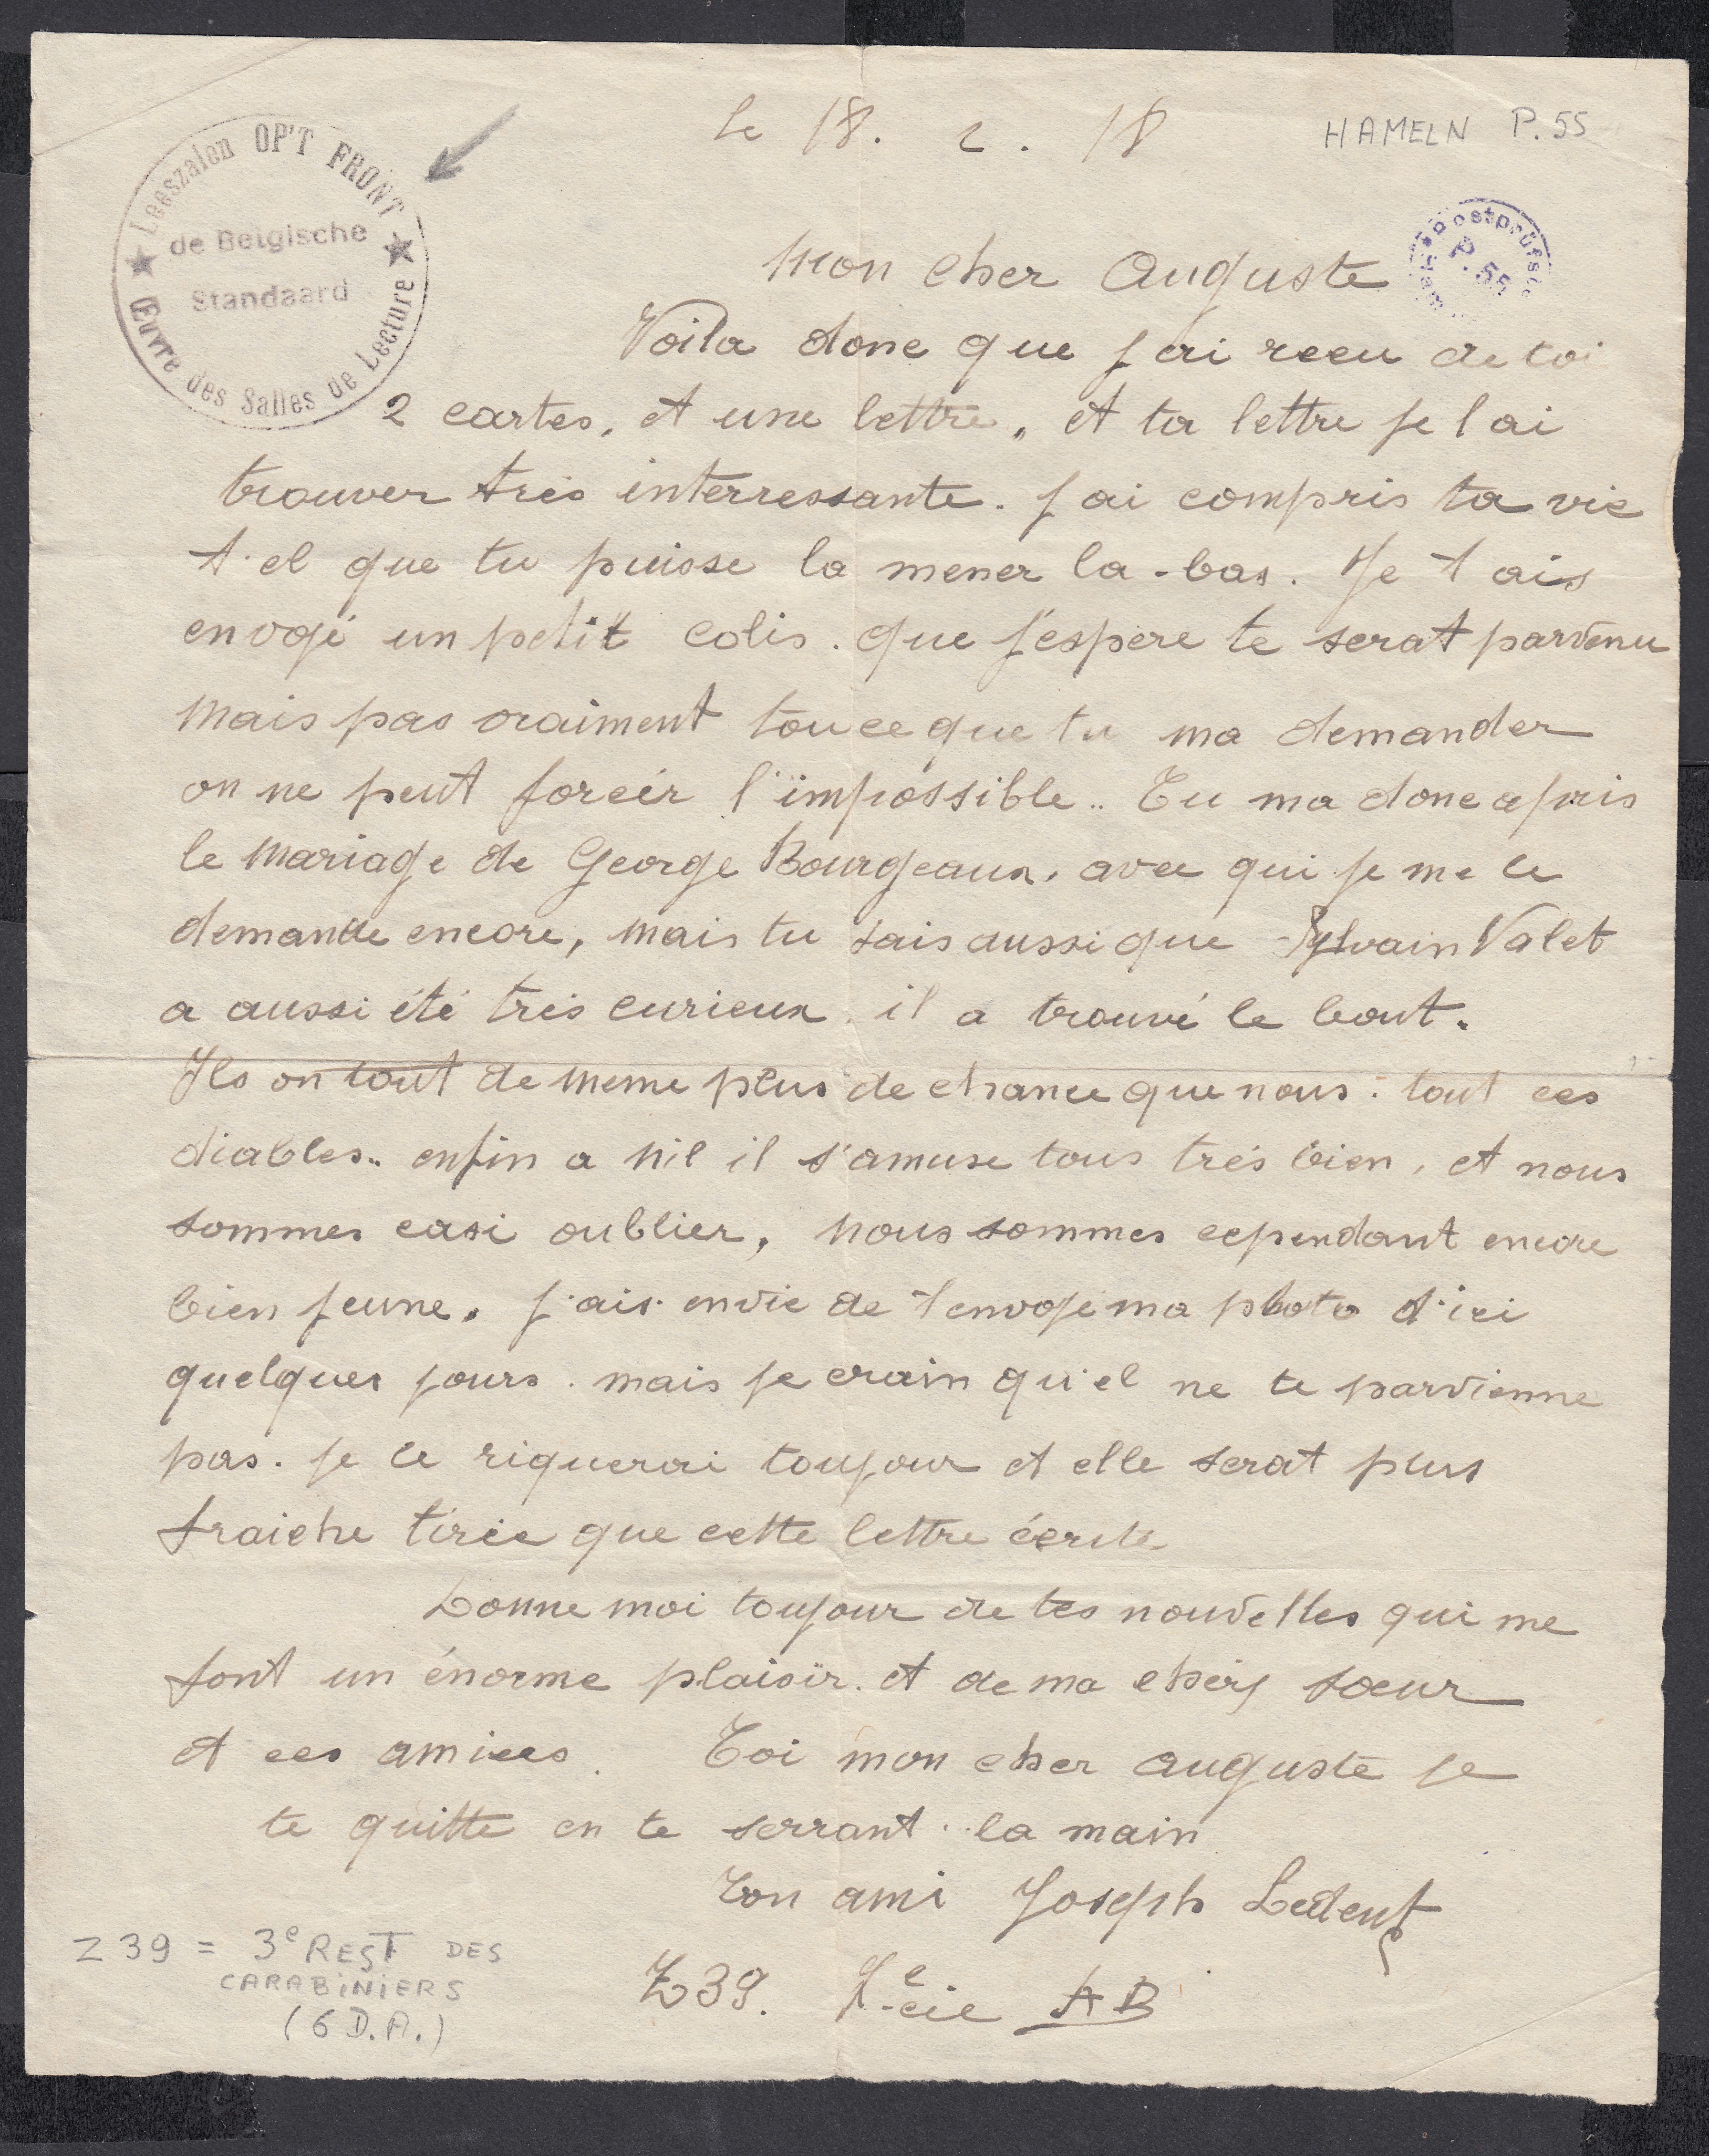 Leeszalen OP'T FRONT
de Belgische
Standaard
Œuvre des Salles de Lecture
le 18. 2. 18
HAMELN P. 55
Postprüfst
P. 55
Mon cher Auguste
Voila donc que j ai recu de toi
2 cartes, et une lettre, et ta lettre je l ai
trouver très interressante. j ai compris ta vie
t'el que tu puisse la mener la-bas. Je t ais
envojé un petit colis. que j'espere te serat parvenu
mais pas vraiment tou ce que tu ma demander
on ne peut forcér l'impossible.. Tu ma donc apris
le mariage de George Bourgeaux. avec qui je me le
demande encore, mais tu sais aussi que Sylvain Valet
a aussi été très curieux. il a trouvé le bout.
Ils on tout de meme plus de chance que nous. tout ces
diables.. enfin a nil il s'amuse tous très bien, et nous
sommes casi oublier, nous sommes cependant encore
bien jeune. j'ais envie de t envoje ma photo d'ici
quelques jours. mais je crain qu'el ne te parvienne
pas. je le riquerai toujour et elle serat plus
fraiche tirée que cette lettre écrite
Donne moi toujour de tes nouvelles qui me
font un énorme plaisir. et de ma chèrs sœur
et ces amies. Toi mon cher auguste je
te quitte en te serrant la main
Ton ami Joseph Ledent
Z 39 = 3e REGT DES
CARABINIERS
(6 D.A.)
Z39. cie AB